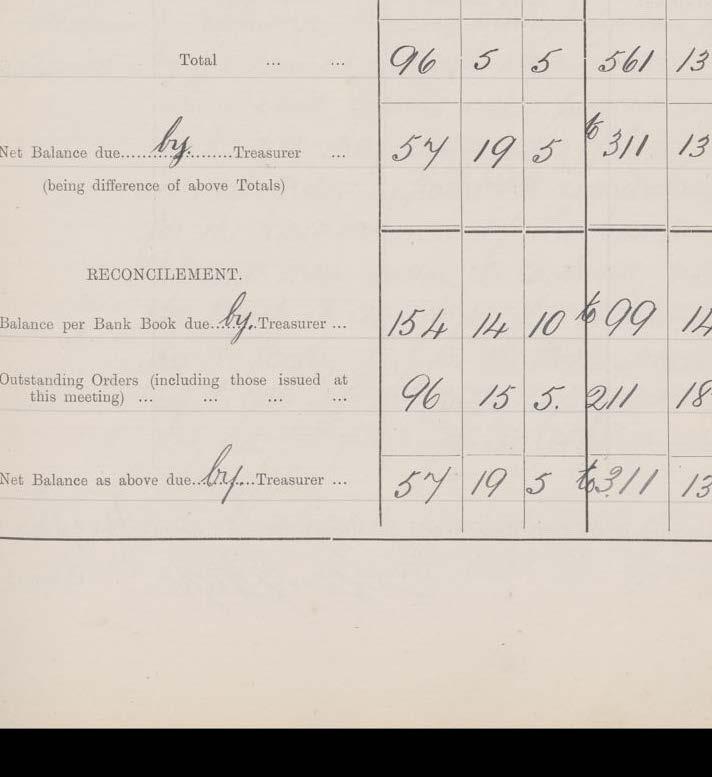 Total ... ... 96 5 5 561 13
Net Balance due......by.......Treasurer ... 57 19 5 to 311 13
(being difference of above Totals)
RECONCILEMENT.
Balance per Bank Book due...by..Treasurer ... 154 14 10 to 99 14
Outstanding Orders (including those issued at
this meeting) ... ... ... ... 96 15 5. 211 18
Net Balance as above due..by....Treasurer ... 57 19 5 to 311 13